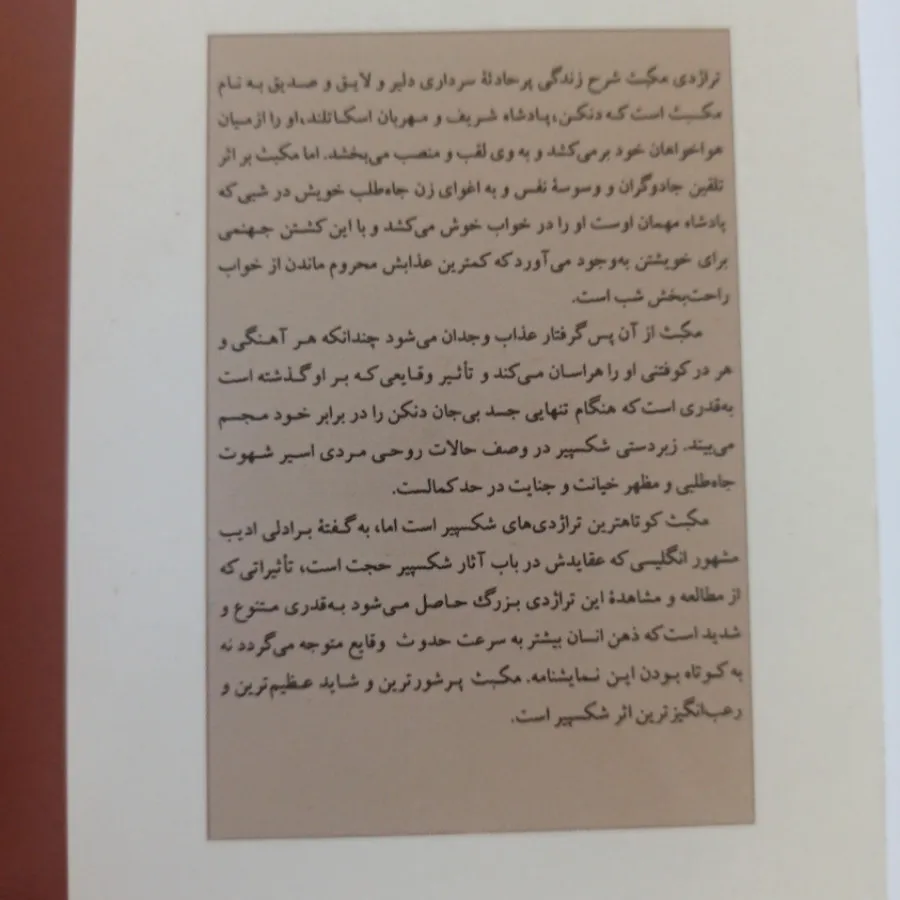 تراژدی مکبث شرح زندگی پرحادثهٔ سرداری دلیر و لایق و صدیق به نام
مکبث است که دنکن، پادشاه شریف و مهربان اسکاتلند، او را از میان
هواخواهان خود برمی‌کشد و به وی لقب و منصب می‌بخشد. اما مکبث بر اثر
تلقین جادوگران و وسوسهٔ نفس و به اغوای زن جاه‌طلب خویش در شبی که
پادشاه مهمان اوست او را در خواب خوش می‌کشد و با این کشتن جهنمی
برای خویشتن به‌وجود می‌آورد که کمترین عذابش محروم ماندن از خواب
راحت‌بخش شب است.
مکبث از آن پس گرفتار عذاب وجدان می‌شود چندانکه هر آهنگی و
هر در کوفتنی او را هراسان می‌کند و تأثیر وقایعی که بر او گذشته است
به‌قدری است که هنگام تنهایی جسد بی‌جان دنکن را در برابر خود مجسم
می‌بیند. زبردستی شکسپیر در وصف حالات روحی مردی اسیر شهوت
جاه‌طلبی و مظهر خیانت و جنایت در حد کمالست.
مکبث کوتاهترین تراژدی‌های شکسپیر است اما، به گفتهٔ برادلی ادیب
مشهور انگلیسی که عقایدش در باب آثار شکسپیر حجت است، تأثیراتی که
از مطالعه و مشاهدهٔ این تراژدی بزرگ حاصل می‌شود به‌قدری متنوع و
شدید است که ذهن انسان بیشتر به سرعت حدوث وقایع متوجه می‌گردد نه
به کوتاه بودن این نمایشنامه. مکبث پرشورترین و شاید عظیم‌ترین و
رعب‌انگیزترین اثر شکسپیر است.